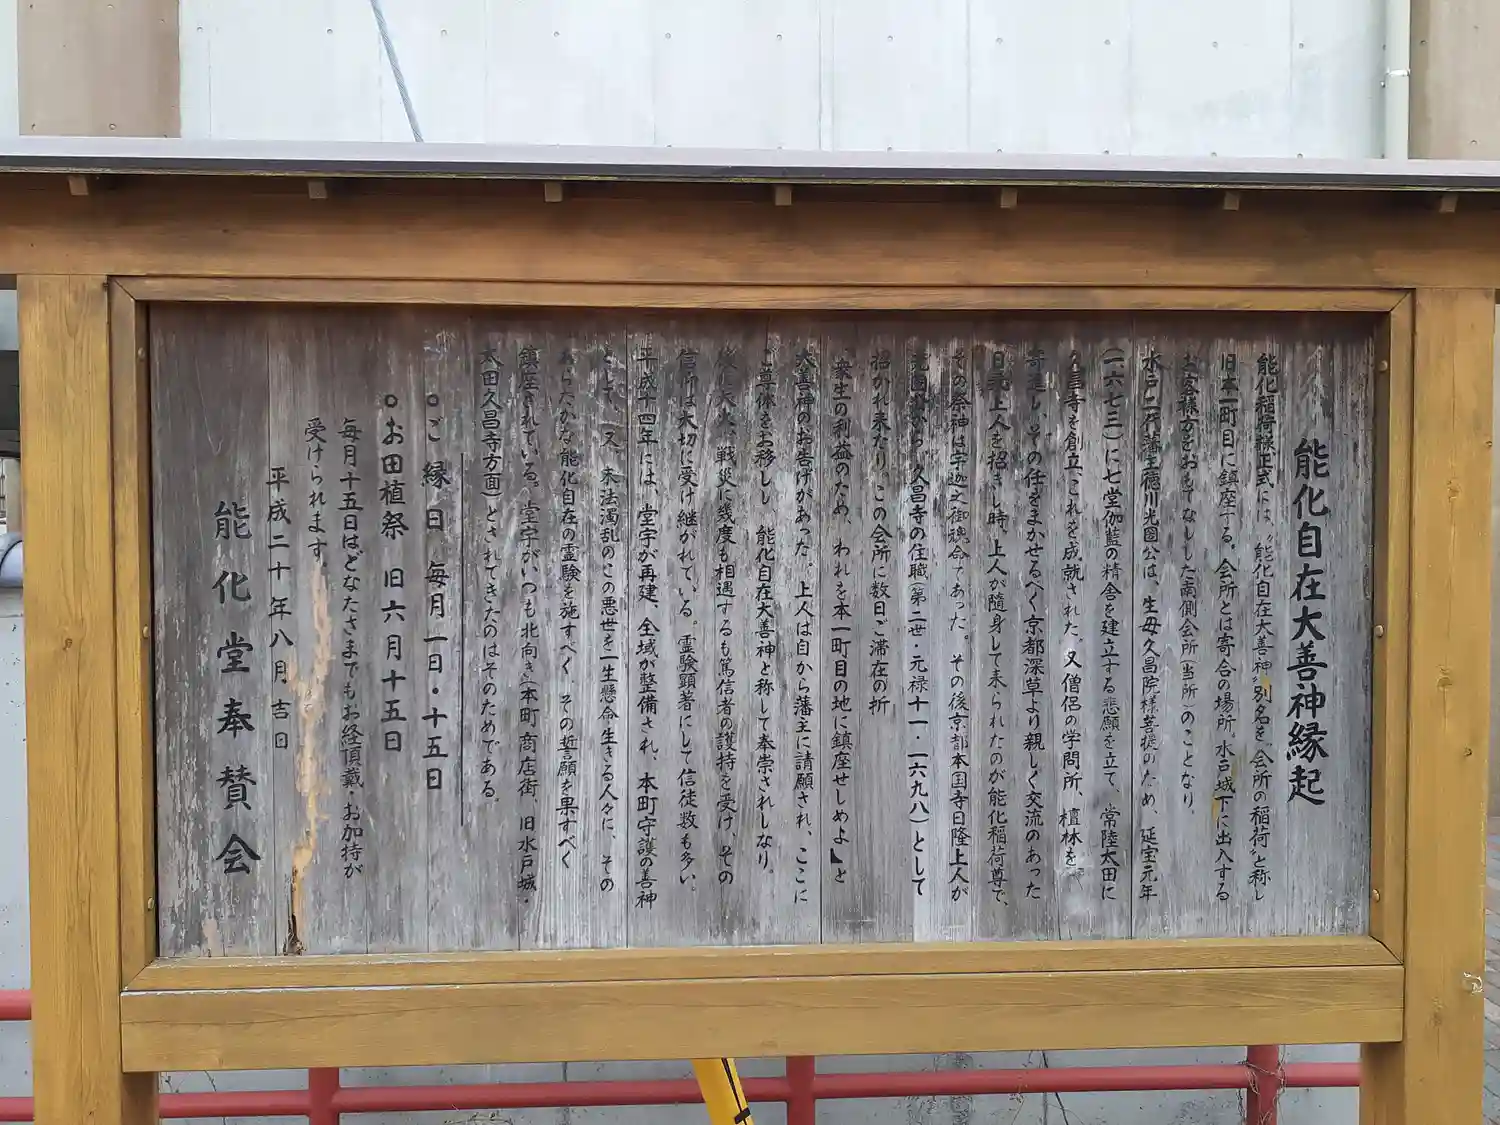 能化自在大善神縁起
能化稲荷様正式には、〝能化自在大善神〟別名を〝会所の稲荷〟と称し
旧本一町目に鎮座する。会所とは寄合の場所。水戸城下に出入する
お客様方をおもてなしした南側会所(当所)のことなり。
水戸二代藩主徳川光圀公は、生母久昌院様菩提のため、延宝元年
(一六七三)に七堂伽藍の精舎を建立する悲願を立て、常陸太田に
久昌寺を創立、これを成就された。又僧侶の学問所、檀林を
寄進し、その任をまかせるべく京都深草より親しく交流のあった
日乘上人を招きし時、上人が隨身して来られたのが能化稲荷尊で、
その祭神は宇迦之御魂命であった。その後京都本国寺日隆上人が
光圀公から、久昌寺の住職(第二世・元禄十一・一六九八)として
招かれ来たり、この会所に数日ご滞在の折
「衆生の利益のため、われを本一町目の地に鎮座せしめよ」と
大善神のお告げがあった。上人は自から藩主に請願され、ここに
ご尊体をお移しし、能化自在大善神と称して奉崇されしなり。
後に大火、戦災に幾度も相遇するも篤信者の護持を受け、その
信仰は大切に受け継がれている。霊験顕著にして信徒数も多い。
平成十四年には、堂宇が再建、全域が整備され、本町守護の善神
として、又、末法濁乱のこの悪世を一生懸命生きる人々に、その
あらたかな能化自在の霊験を施すべく その誓願を果すべく
鎮座されている。堂宇がいつも北向き(本町商店街、旧水戸城・
太田久昌寺方面)とされてきたのはそのためである。
○ご縁日 毎月一日・十五日
○お田植祭 旧六月十五日
毎月十五日はどなたさまでもお経頂戴・お加持が
受けられます。
平成二十年八月吉日
能化堂奉賛会